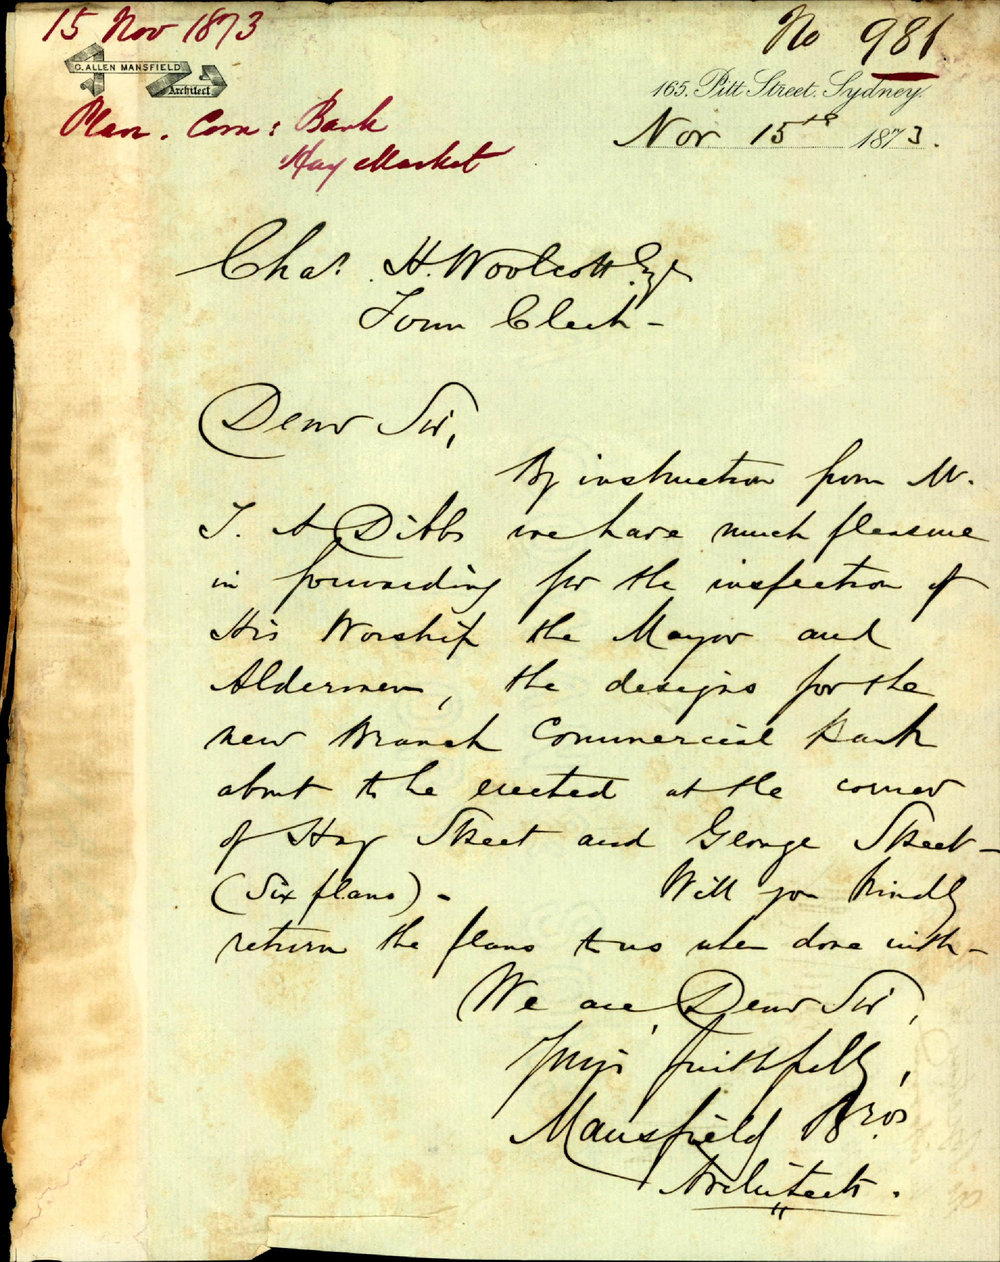 15 Nov 1873
No 981
G. ALLEN MANSFIELD
Architect
165. Pitt Street. Sydney.
Plan. Com: Bank
Hay Market
Nov 15th 1873.
Chas. H. Woolcott Esqr
Town Clerk -
Dear Sir,
By instruction from Mr.
T. A Dibbs we have much pleasure
in forwarding for the inspection of
His Worship the Mayor and
Aldermen, the designs for the
new Branch Commercial Bank
about to be erected at the corner
of Hay Street and George Street -
(Six plans) - Will you kindly
return the plans to us when done with -
We are, Dear Sir,
Yours faithfully,
Mansfield Bros.
Architects.